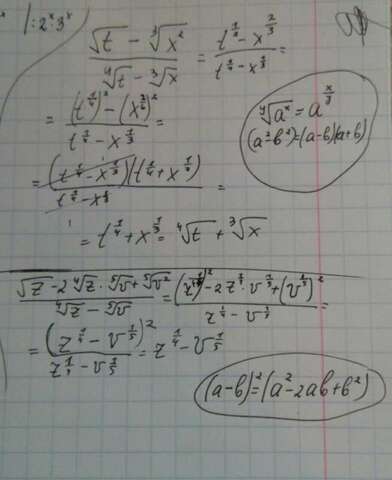 1:2ˣ·3ˣ
(√t − ∛x²)/(∜t − ∛x) = (t^(1/2) − x^(2/3))/(t^(1/4) − x^(1/3)) =
= ((t^(1/4))² − (x^(2/6))²)/(t^(1/4) − x^(1/3)) =
ʸ√aˣ = a^(x/y)
(a²−b²)=(a−b)(a+b)
= (t^(1/4) − x^(1/3))(t^(1/4) + x^(1/3))/(t^(1/4) − x^(1/3)) =
= t^(1/4) + x^(1/3) = ∜t + ∛x
(√z − 2∜z · ⁵√v + ⁵√v²)/(∜z − ⁵√v) = ((z^(1/4))² − 2z^(1/4) · v^(1/5) + (v^(1/5))²)/(z^(1/4) − v^(1/5)) =
= (z^(1/4) − v^(1/5))²/(z^(1/4) − v^(1/5)) = z^(1/4) − v^(1/5)
(a−b)²=(a²−2ab+b²)